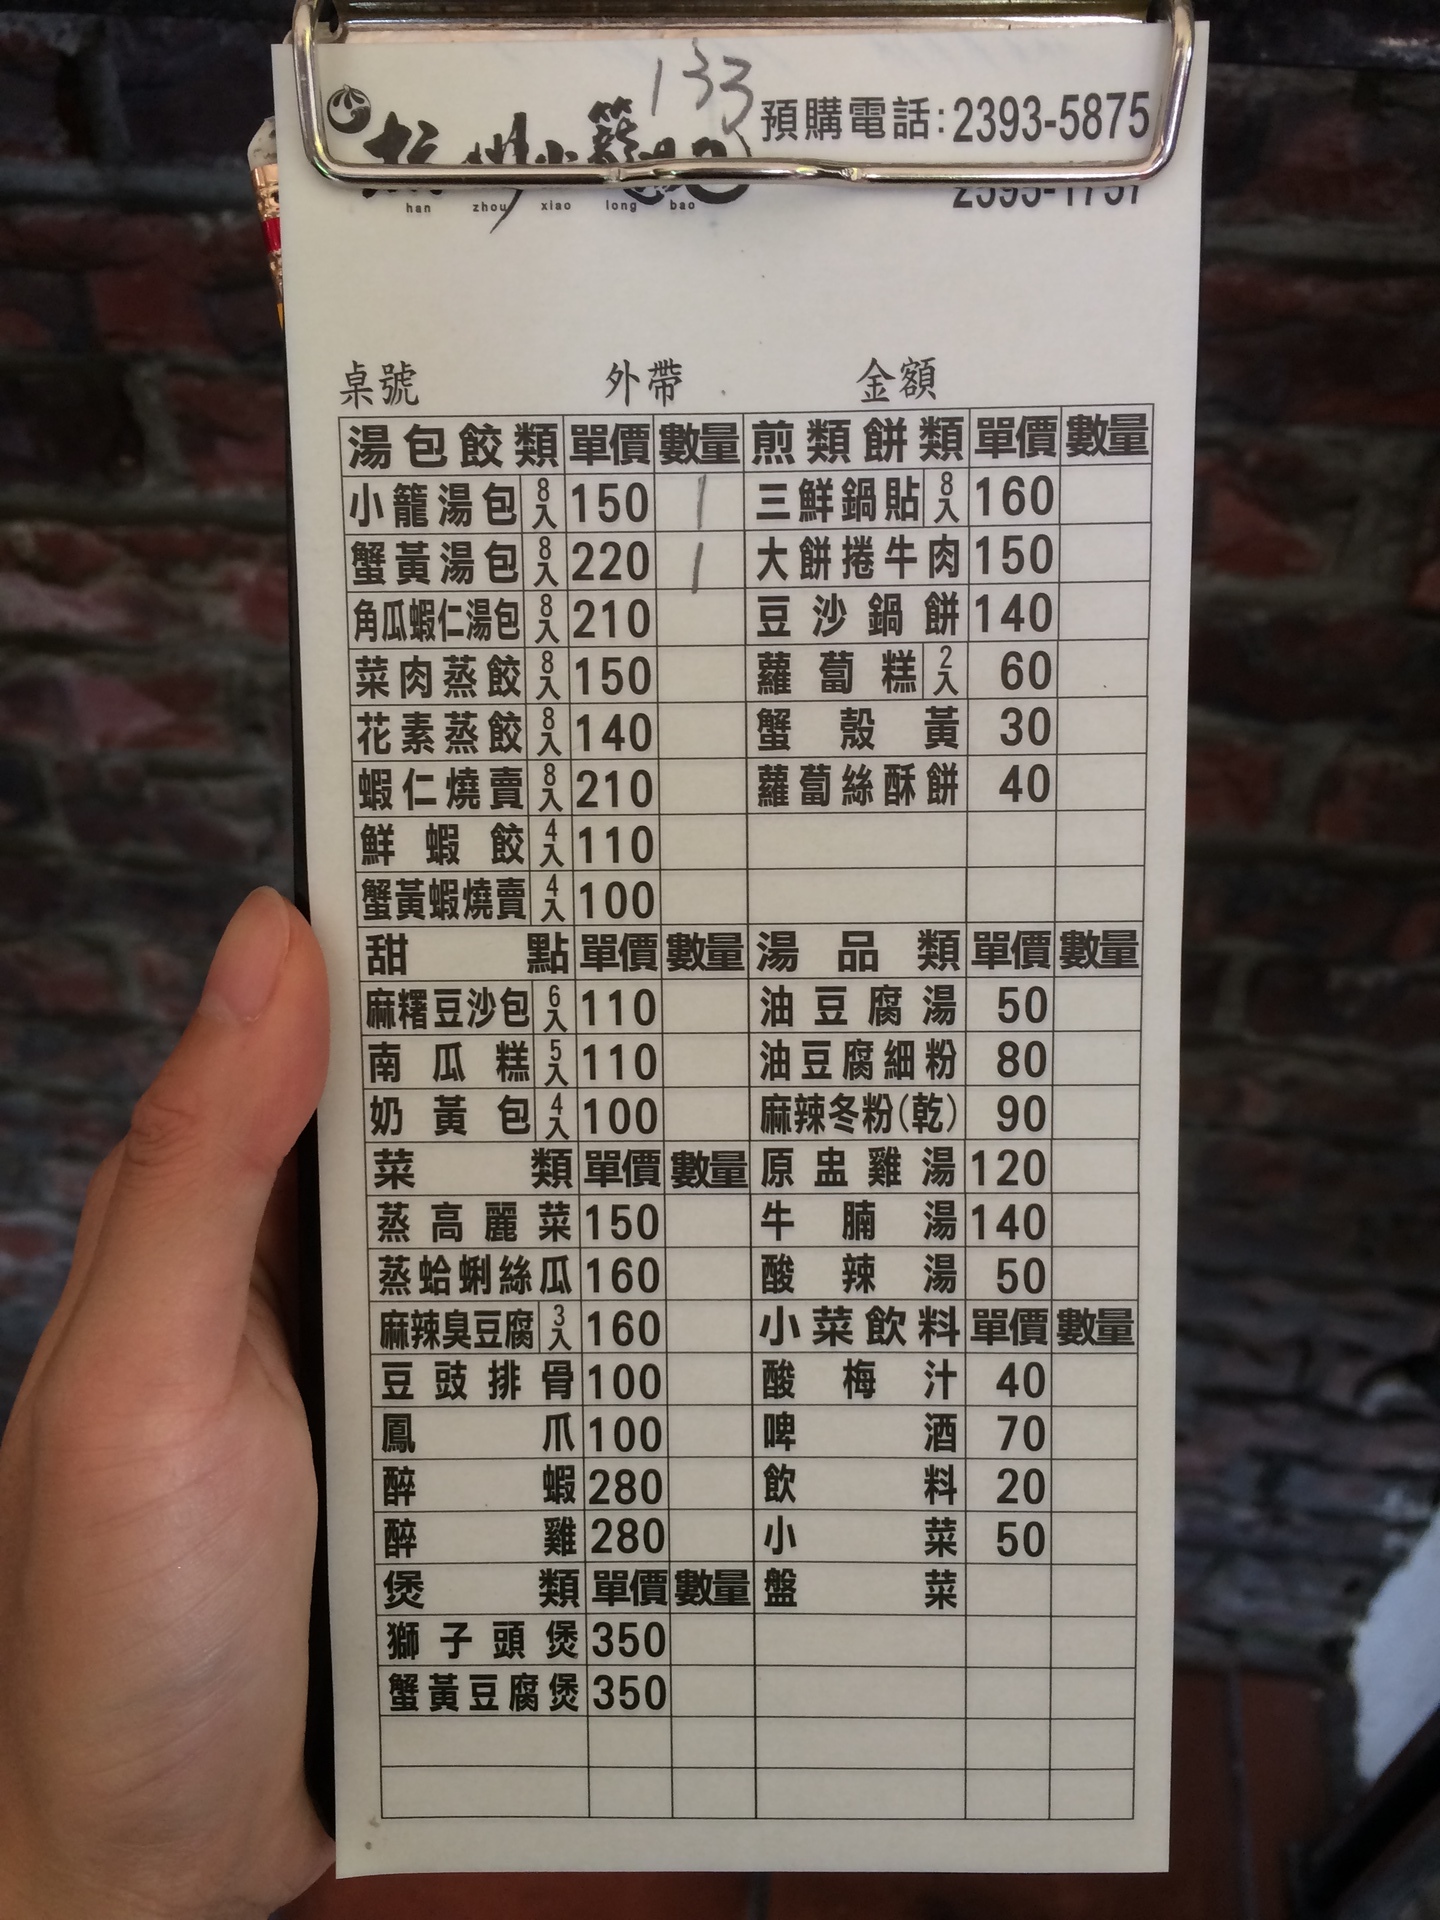 133
杭州小籠湯包
預購電話:2393-5875
2393-1757
han zhou xiao long bao
桌號 外帶 金額
湯包餃類 單價 數量 煎類餅類 單價 數量
小籠湯包 8入 150 1 三鮮鍋貼 8入 160
蟹黃湯包 8入 220 1 大餅捲牛肉 150
角瓜蝦仁湯包 8入 210 豆沙鍋餅 140
菜肉蒸餃 8入 150 蘿蔔糕 2入 60
花素蒸餃 8入 140 蟹殼黃 30
蝦仁燒賣 8入 210 蘿蔔絲酥餅 40
鮮蝦餃 4入 110
蟹黃蝦燒賣 4入 100
甜點 單價 數量 湯品類 單價 數量
麻糬豆沙包 6入 110 油豆腐湯 50
南瓜糕 5入 110 油豆腐細粉 80
奶黃包 4入 100 麻辣冬粉(乾) 90
菜類 單價 數量 原盅雞湯 120
蒸高麗菜 150 牛腩湯 140
蒸蛤蜊絲瓜 160 酸辣湯 50
麻辣臭豆腐 3入 160 小菜飲料 單價 數量
豆豉排骨 100 酸梅汁 40
鳳爪 100 啤酒 70
醉蝦 280 飲料 20
醉雞 280 小菜 50
煲類 單價 數量 盤菜
獅子頭煲 350
蟹黃豆腐煲 350